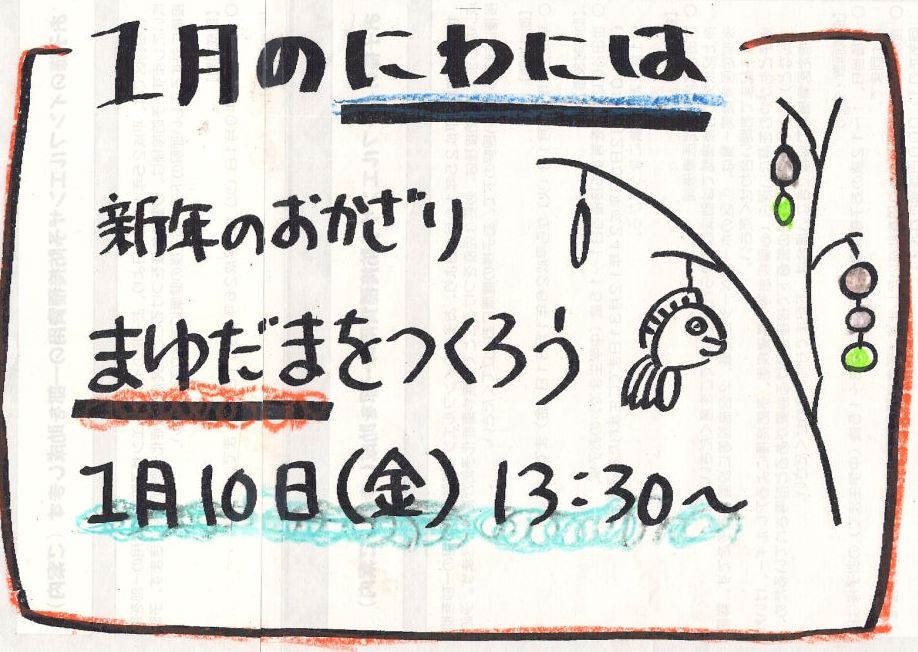 1月のにわには
新年のおかざり
まゆだまをつくろう
1月10日(金) 13:30～